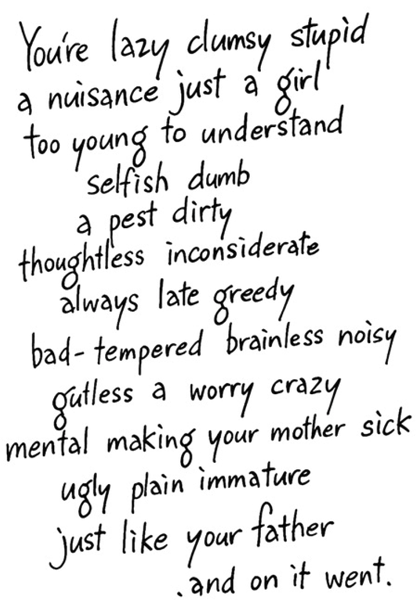 You're lazy clumsy stupid
a nuisance just a girl
too young to understand
selfish dumb
a pest dirty
thoughtless inconsiderate
always late greedy
bad-tempered brainless noisy
gutless a worry crazy
mental making your mother sick
ugly plain immature
just like your father
.and on it went.